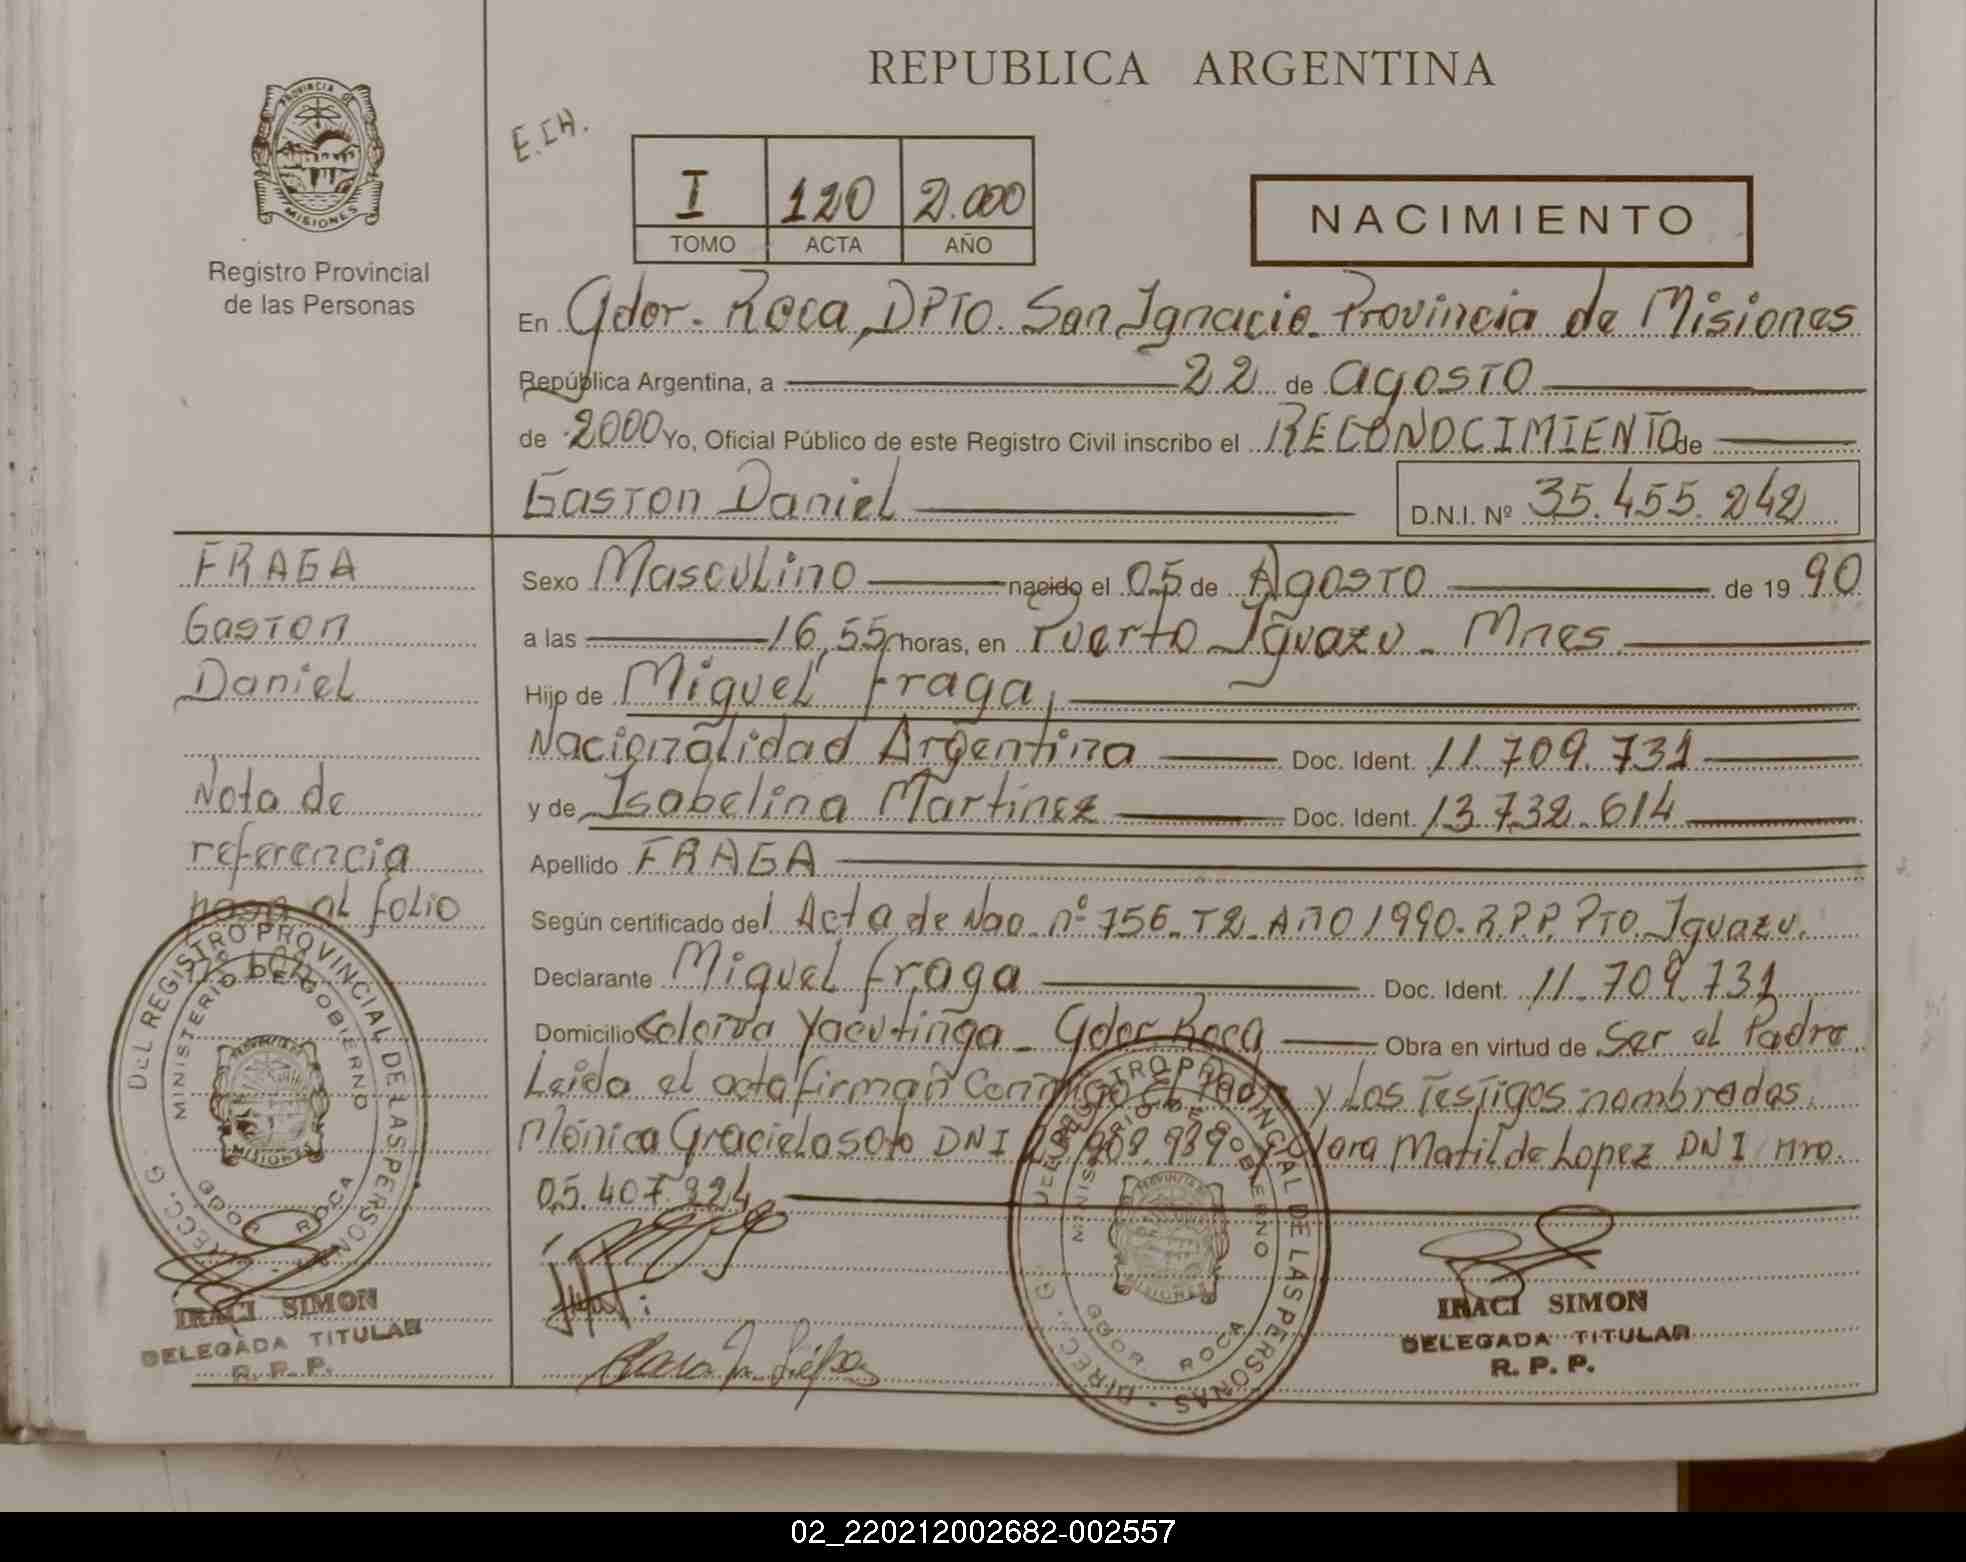 REPUBLICA ARGENTINA
PROVINCIA DE
MISIONES
Registro Provincial
de las Personas
E.CH.
I 120 2.000
TOMO ACTA AÑO
NACIMIENTO
En Gdor. Roca, DPTO. San Ignacio. Provincia de Misiones
República Argentina, a 22 de agosto
de 2000 Yo, Oficial Público de este Registro Civil inscribo el RECONOCIMIENTO de
Gaston Daniel D.N.I. Nº 35.455.242
FRAGA
Gaston
Daniel
Nota de
referencia
pasa al folio
Sexo Masculino nacido el 05 de Agosto de 19 90
a las 16,55 horas, en Puerto Iguazu - Mnes
Hijo de Miguel Fraga,
Nacionalidad Argentina Doc. Ident. 11.709.731
y de Isabelina Martinez Doc. Ident. 13.732.614
Apellido FRAGA
Según certificado del Acta de Nac. nº 756 - T2 - Año 1990 - R.P.P. Pto. Iguazu.
Declarante Miguel Fraga Doc. Ident. 11.709.731
Domicilio Colonia Yacutinga - Gdor Roca Obra en virtud de Ser el Padre
Leida el acta firman Conmigo El Padre y Los Testigos nombrados.
Mónica Graciela Soto DNI 908.989 y Clara Matilde Lopez DNI nro.
05.407.324
DIRECC. G. DEL REGISTRO PROVINCIAL DE LAS PERSONAS
MINISTERIO DE GOBIERNO
GDOR. ROCA
MISIONES
IRACI SIMON
DELEGADA TITULAR
R. P. P.
DIRECC. G. DEL REGISTRO PROVINCIAL DE LAS PERSONAS
MINISTERIO DE GOBIERNO
GDOR. ROCA
MISIONES
IRACI SIMON
DELEGADA TITULAR
R. P. P.
02_220212002682-002557